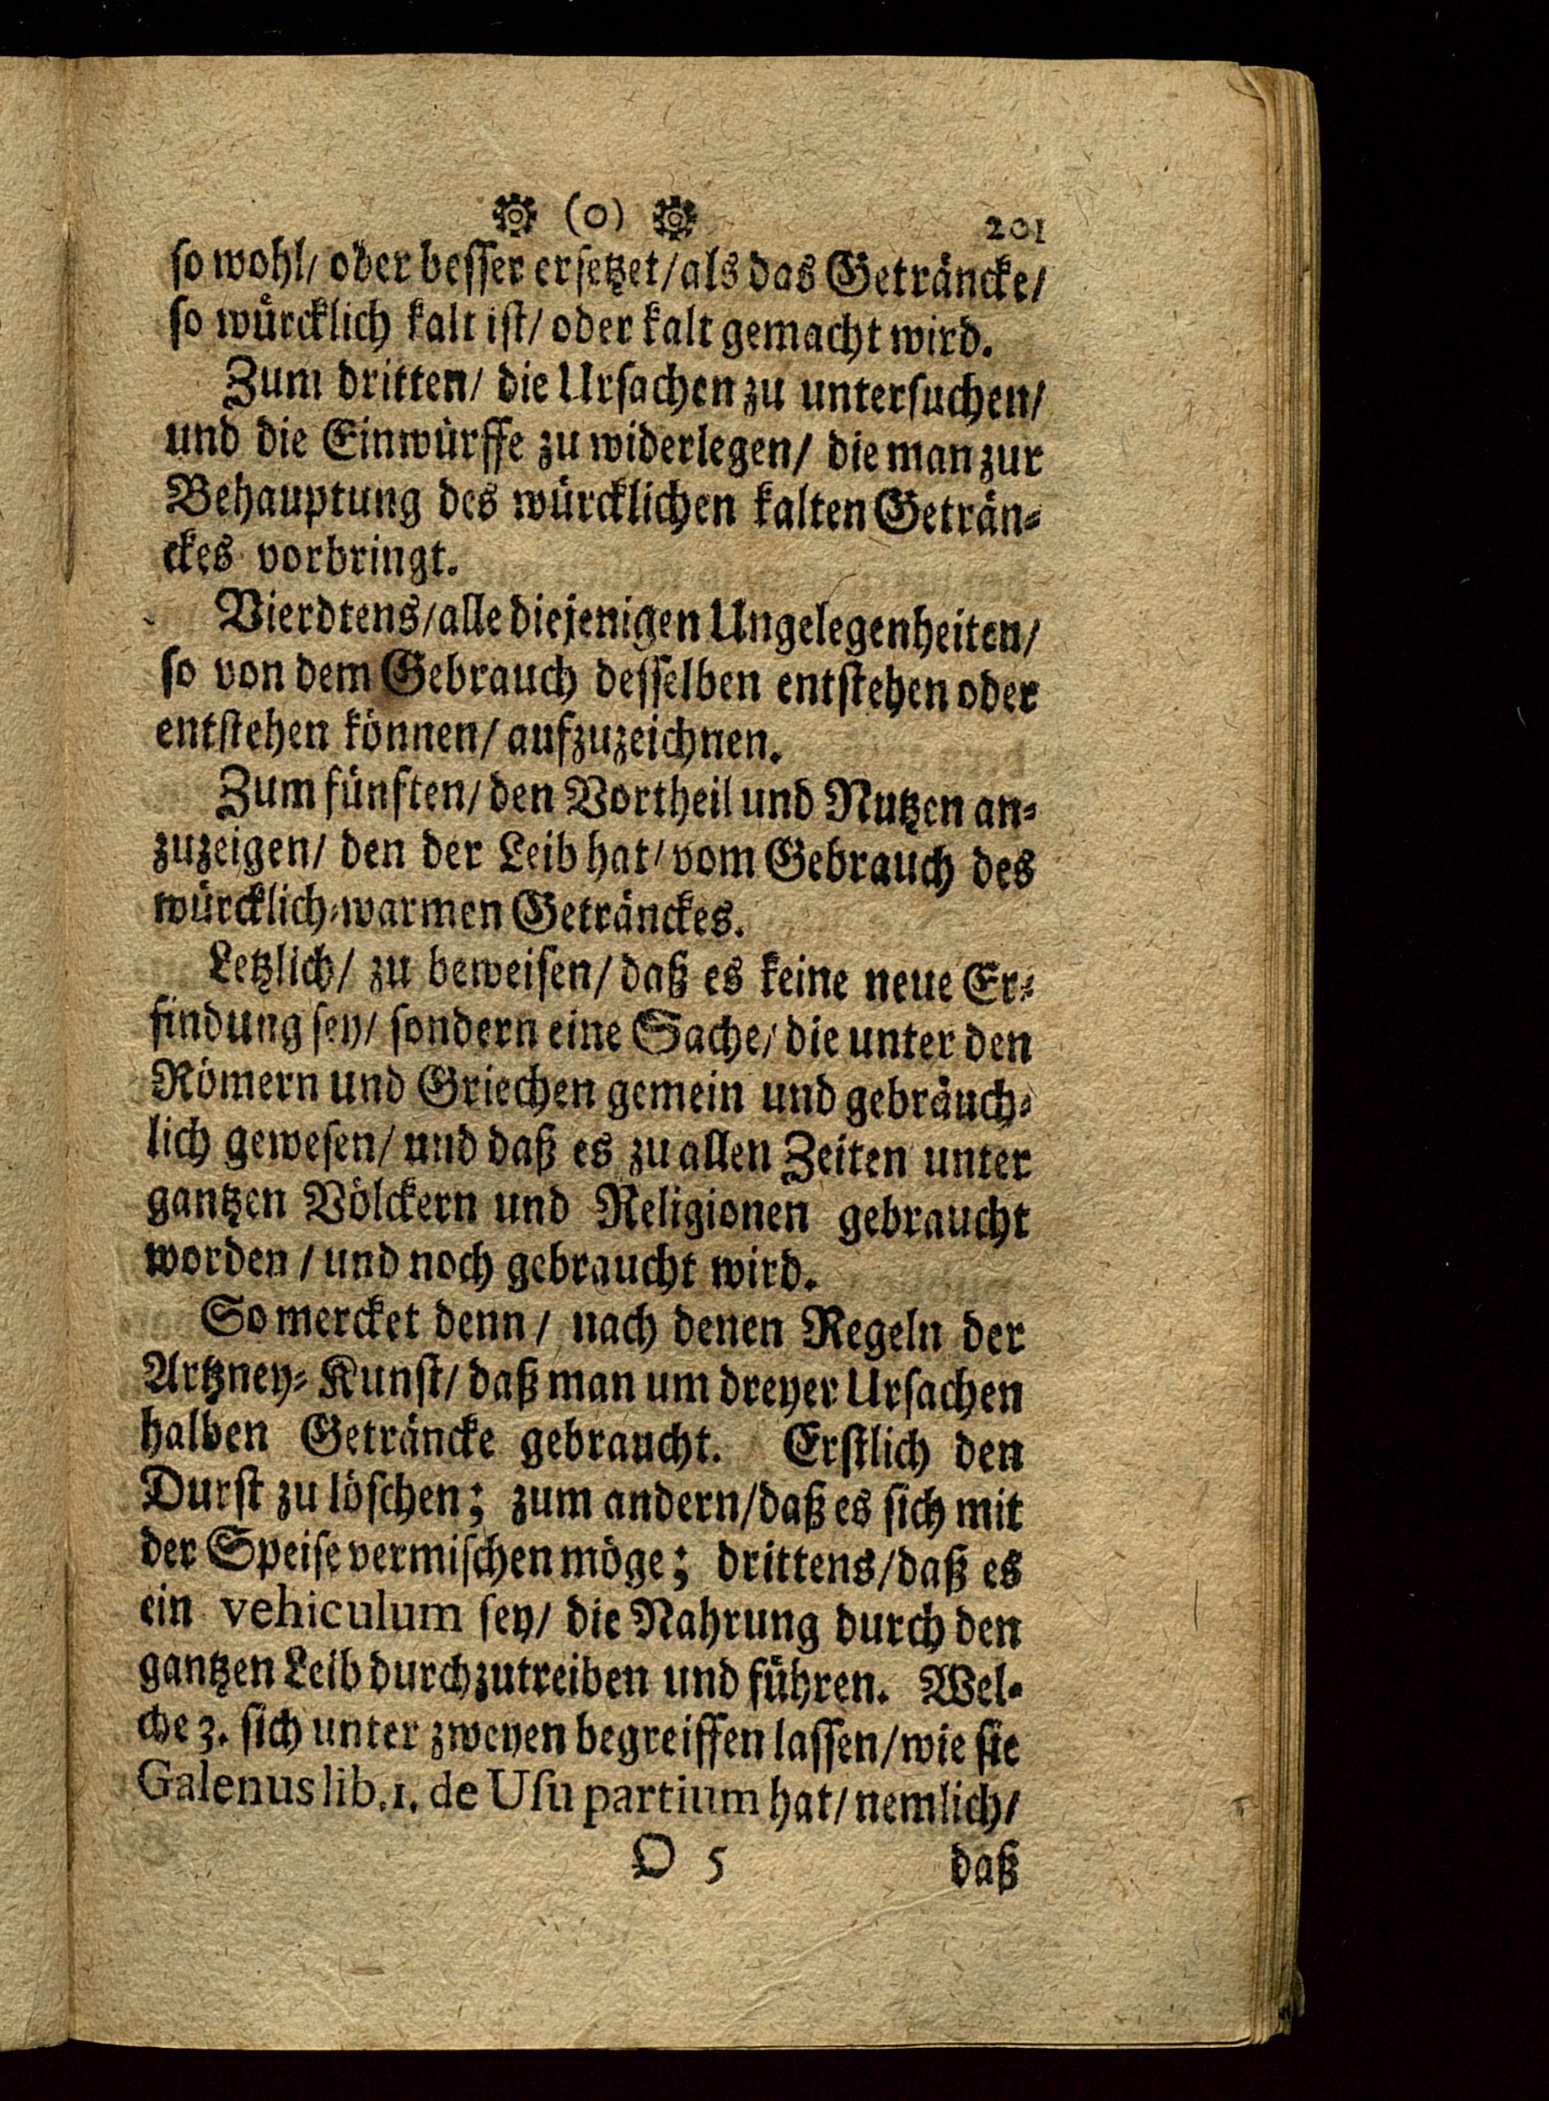 (o) 201
so wohl/ oder besser ersetzet/ als das Geträncke/
so würcklich kalt ist/ oder kalt gemacht wird.
Zum dritten/ die Ursachen zu untersuchen/
und die Einwürffe zu widerlegen/ die man zur
Behauptung des würcklichen kalten Geträn-
ckes vorbringt.
Vierdtens/ alle diejenigen Ungelegenheiten/
so von dem Gebrauch desselben entstehen oder
entstehen können/ aufzuzeichnen.
Zum fünften/ den Vortheil und Nutzen an-
zuzeigen/ den der Leib hat/ vom Gebrauch des
würcklich-warmen Getränckes.
Letzlich/ zu beweisen/ daß es keine neue Er-
findung sey/ sondern eine Sache/ die unter den
Römern und Griechen gemein und gebräuch-
lich gewesen/ und daß es zu allen Zeiten unter
gantzen Völckern und Religionen gebraucht
worden / und noch gebraucht wird.
So mercket denn / nach denen Regeln der
Artzney-Kunst/ daß man um dreyer Ursachen
halben Geträncke gebraucht. Erstlich den
Durst zu löschen; zum andern/ daß es sich mit
der Speise vermischen möge; drittens/ daß es
ein vehiculum sey/ die Nahrung durch den
gantzen Leib durchzutreiben und führen. Wel-
che 3. sich unter zweyen begreiffen lassen/ wie sie
Galenus lib. 1. de Usu partium hat/ nemlich/
O 5 daß